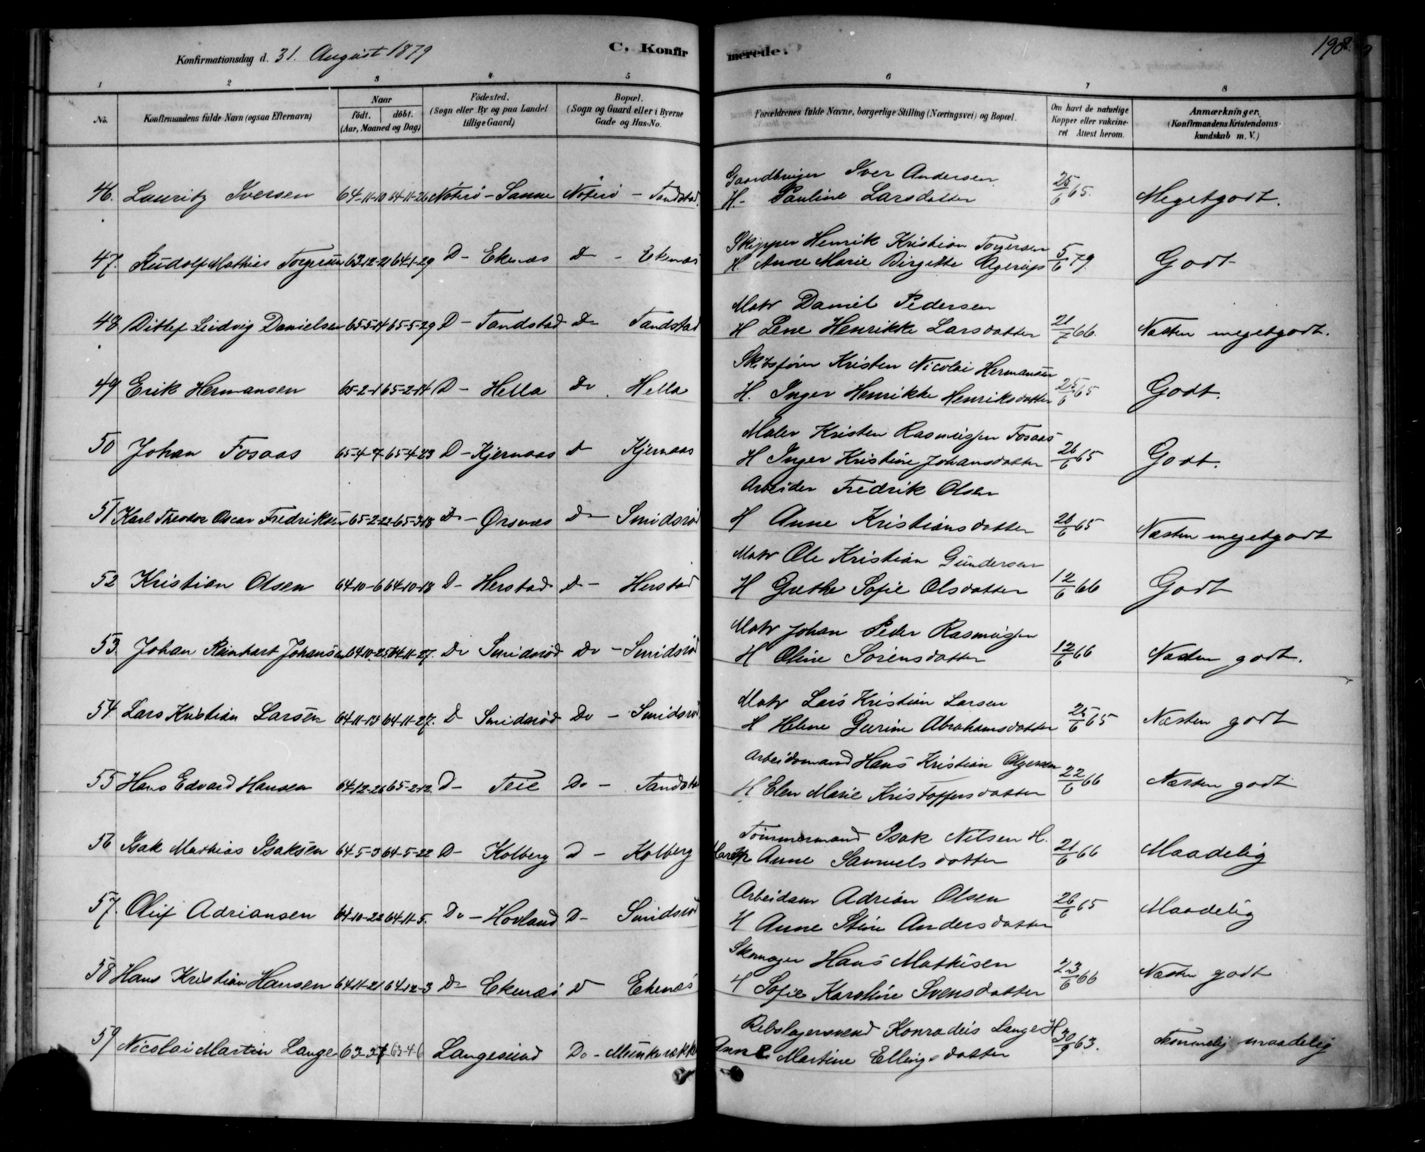 Konfirmationsdag d. 31. August 1879 C. Konfir merede. 198
1 2 3 4 5 6 7 8
No. Konfirmandens fulde Navn (ogsaa Efternavn) Naar født. døbt. (Aar, Maaned og Dag) Fødested. (Sogn eller By og paa Landet tillige Gaard) Bopæl. (Sogn og Gaard eller i Byerne Gade og Hus-No. Forældrenes fulde Navne, borgerlige Stilling (Næringsvei) og Bopæl. Om havt de naturlige Kopper eller vakcineret Attest herom. Anmærkninger. (Konfirmandens Kristendomskundskab m. V.)
Gaardbruger Iver Andersen
46. Lauritz Iversen 64-11-10 64-11-26 Nøtterø - Sanne Nøterø - Tandstad H. Pauline Larsdatter 25/6 65. Megetgodt.
Skipper Henrik Kristian Torgersen
47. Rudolf Mathias Torgersen 63-12-21 64-1-29 D - Ekenæs D - Ekenæs H Anne Marie Birgitte Agerups 5/6 79 Godt
Matr Daniel Pedersen
48 Ditlef Ludvig Danielsen 65-5-14 65-5-29 D - Tandstad Do Tandstad H Lene Henrikke Larsdatter 21/7 66 Næsten megetgodt.
Skibsfører Kristen Nicolai Hermansen
49 Erik Hermansen 65-2-1 65-2-14 D - Hella Do Hella H. Inger Henrikke Henriksdatter 25/6 65 Godt.
Matr Kristen Rasmusen Fosaas
50 Johan Fosaas 65-4-7 65-4-23 D - Kjernaas D Kjernaas H Inger Kristine Johansdatter 26/6 65 Godt.
Arbeider Fredrik Olsen
51 Karl Theodor Oscar Fredriksen 65-2-22 65-3-18 D - Ørsnæs D - Smidsrød H Anne Kristiansdatter 26/6 65 Næsten megetgodt
Matr Ole Kristian Gundersen
52 Kristian Olsen 64-10-6 64-10-18 D - Herstad D - Herstad H Grethe Sofie Olsdatter 12/6 66 Godt
Matr Johan Peder Rasmusen
53. Johan Reinhart Johansen 64-10-25 64-11-27. Do Smidsrød Do - Smidsrød H Oline Sørensdatter 12/6 66 Næsten godt.
Matr Lars Kristian Larsen
54 Lars Kristian Larsen 64-11-13 64-11-27. D Smidsrød Do - Smidsrød H Helene Gurine Abrahamsdatter 25/6 65 Næsten godt
Arbeidsmand Hans Kristian Olgersen
55 Hans Edvard Hansen 64-12-26 65-2-12 D - Teie Do - Tandstad H Elen Marie Kristoffersdatter 22/6 66 Næsten godt
Tømmermand Isak Nilsen H.
56 Isak Mathias Isaksen 64-5-3 64-5-22 D - Kolberg D - Kolberg Anne Samuelsdatter 21/6 66 Maadelig
Arbeidsm Adrian Olsen
57. Oluf Adriansen 64-10-22 64-11-5. Do - Hovland D - Smidsrød H Anne Stine Andersdatter 26/6 65 Maadelig
Skomager Hans Mathisen
58 Hans Kristian Hansen 64-11-21 64-12-3 Do Ekenæs D Ekenæs H Sofie Karoline Svensdatter 23/6 66 Næsten godt
Rebslagersvend Konradus Lange H
59 Nicolai Martin Lange 63-3-7 63-4-6 Langesund Do - Munkerekka Anne Martine Ellingsdatter 30/9 63. Temmelig maadelig